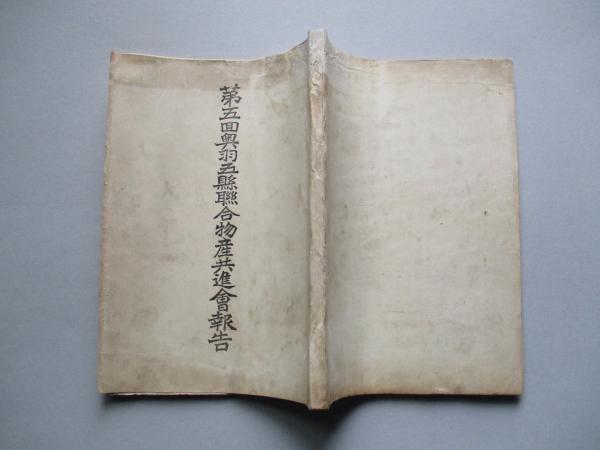 第五回奥羽五縣聯合物産共進會報告